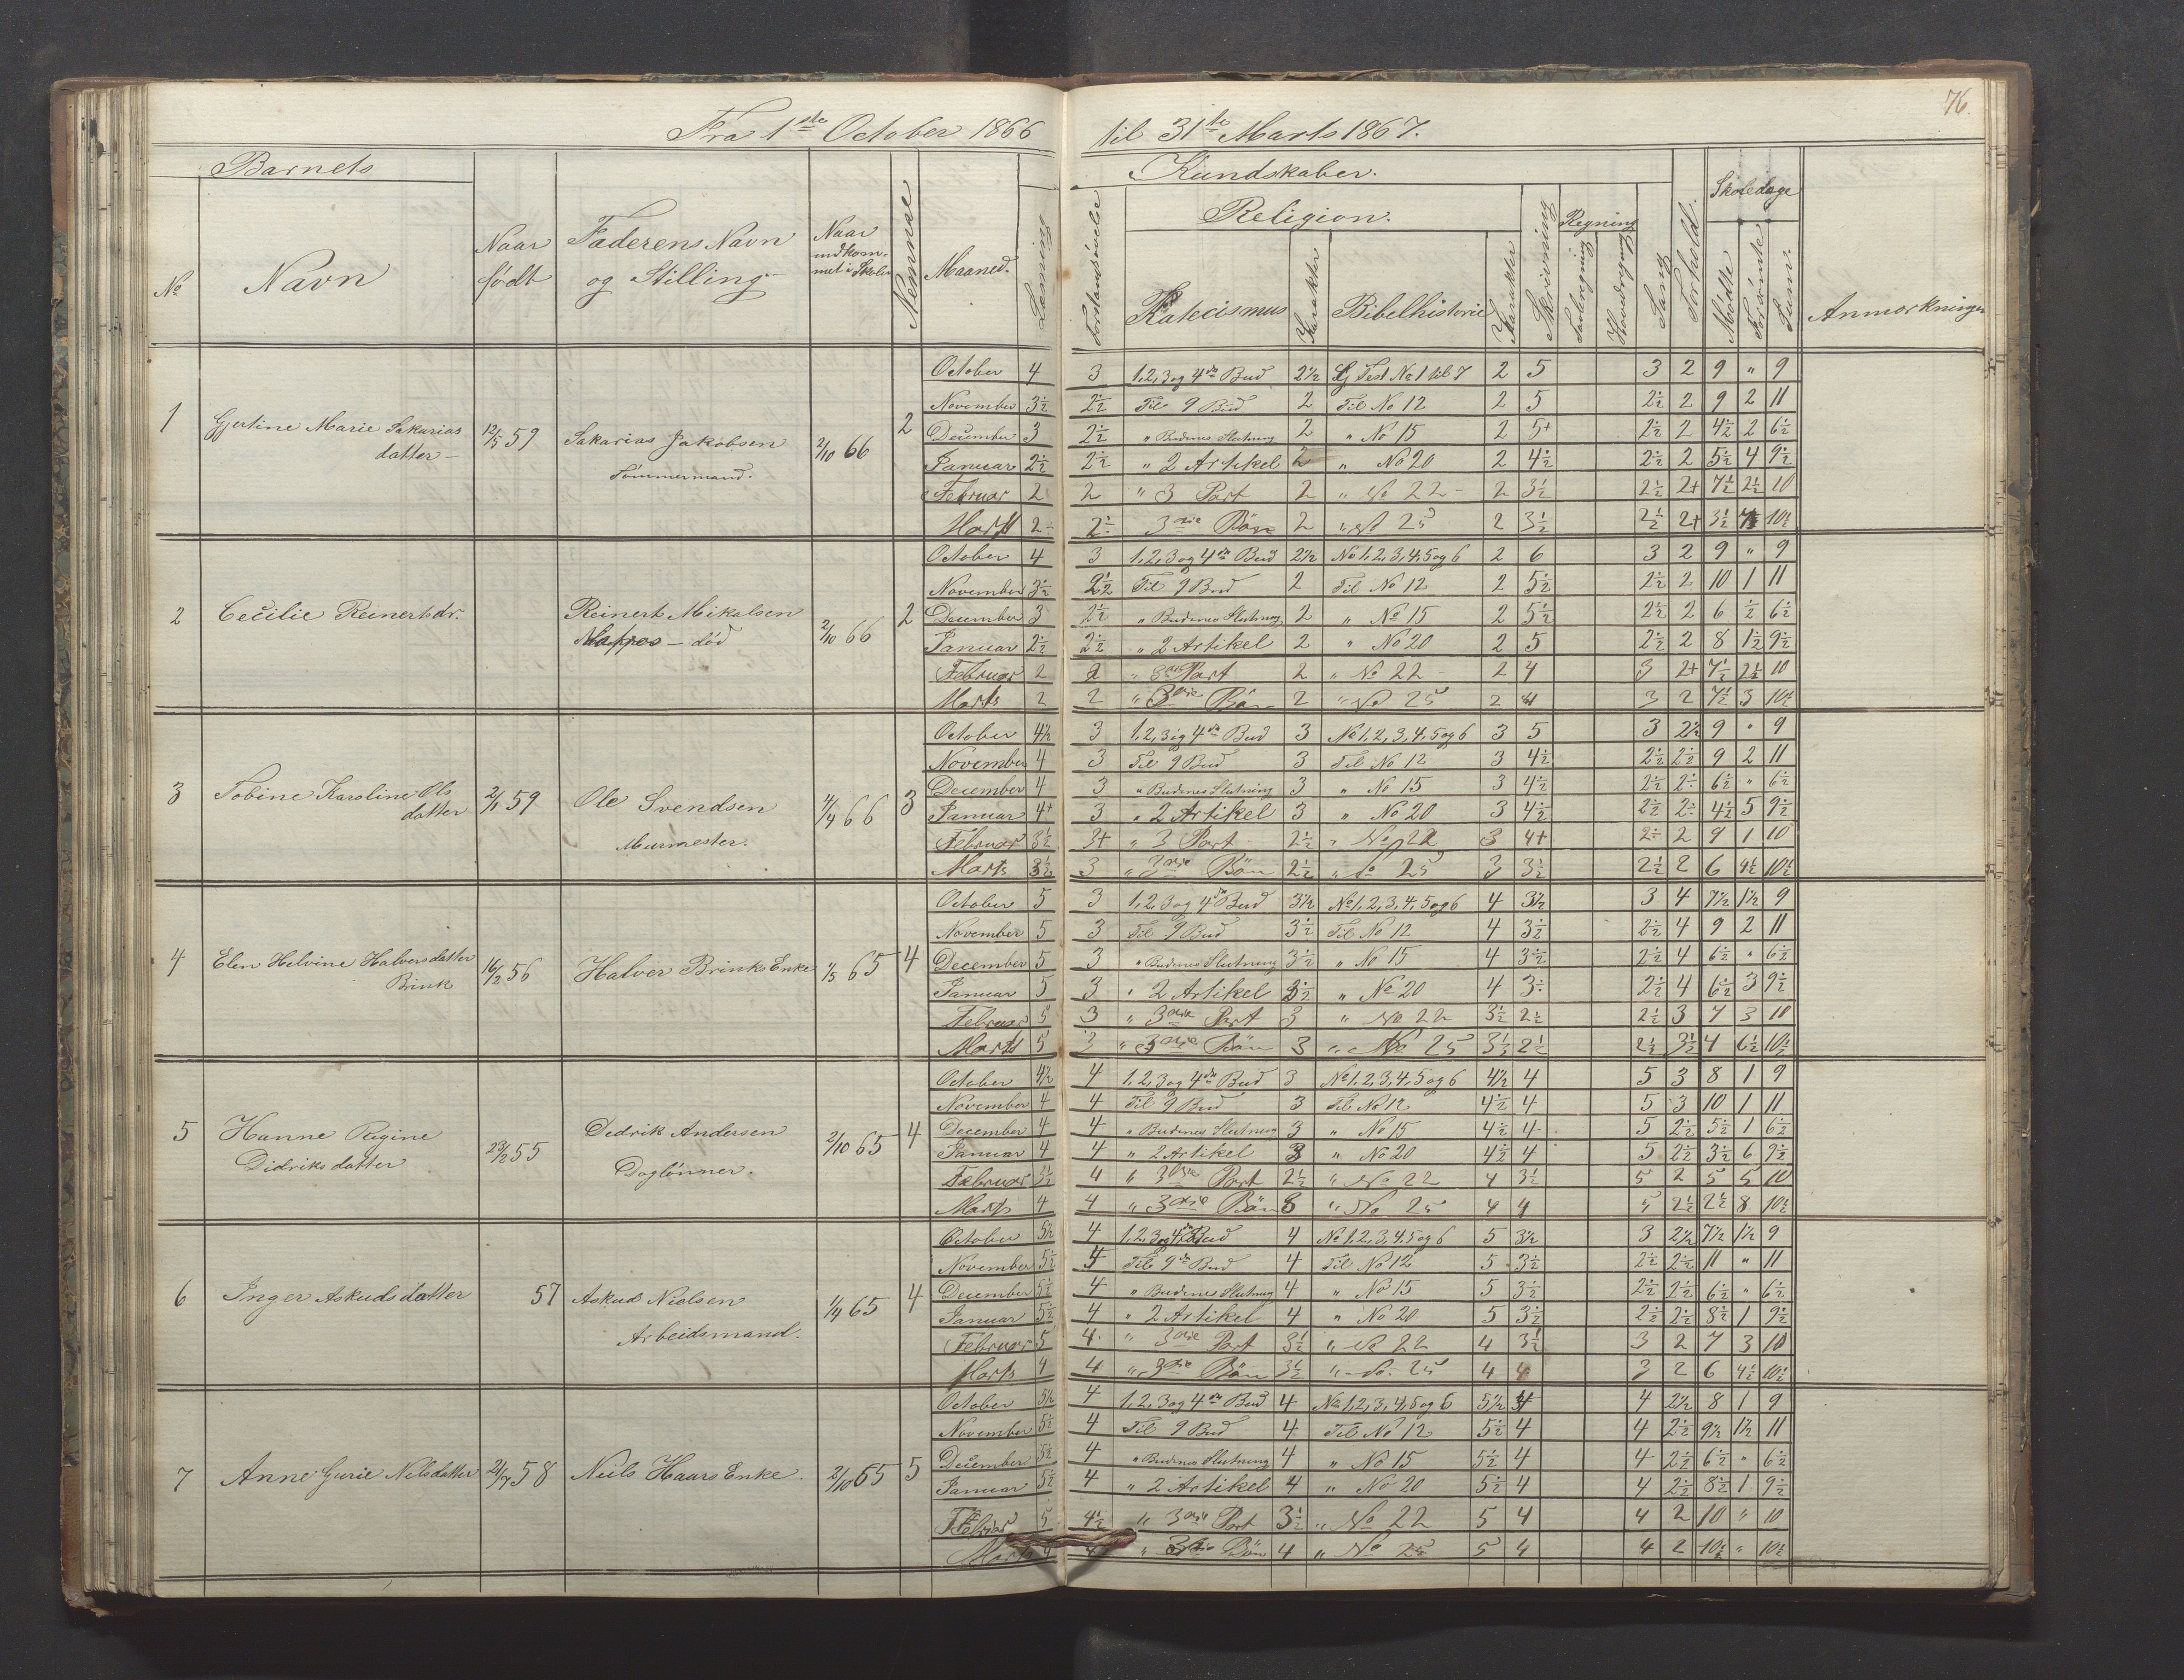 76.
Fra 1ste October 1866 til 31te Marts 1867.
Barnets
Kundskaber.
Skoledage
Religion.
Regning
No Navn Naar født Faderens Navn og Stilling Naar indkommet i Skolen Nemme Maaned. Læsning Forstandsøvelse Katecismus Karakter Bibelhistorie Karakter Skrivning Tavleregning Hovedregning Sang Forhold. Mødte Forsømte Sum. Anmærkninger
1 Gjertine Marie Sakarias datter 12/5 59 Sakarias Jakobsen Tømmermand. 2/10 66 2
October 4 3 1, 2, 3 og 4de Bud 2 1/2 Gj Test No 1 til 7 2 5 3 2 9 " 9
November 3 1/2 2 1/2 Til 9 Bud 2 Til No 12 2 5 2 1/2 2 9 2 11
December 3 2 1/2 " Budenes Slutning 2 " No 15 2 5+ 2 1/2 2 4 1/2 2 6 1/2
Januar 2 1/2 2 1/2 " 2 Artikel 2 " No 20 2 4 1/2 2 1/2 2 5 1/2 4 9 1/2
Februar 2 2 " 3 Part 2 " No 22 2 3 1/2 2 1/2 2+ 7 1/2 2 1/2 10
Marts 2 2 3die Bøn 2 " No 25 2 3 1/2 2 1/2 2+ 3 1/2 7 10 1/2
2 Cecilie Reinertsdr. Reinert Mikalsen død 2/10 66 2
October 4 3 1, 2, 3 og 4de Bud 2 1/2 No 1, 2, 3, 4, 5 og 6 2 6 3 2 9 " 9
November 3 1/2 2 1/2 Til 9 Bud 2 Til No 12 2 5 1/2 2 1/2 2 10 1 11
December 3 2 1/2 " Budenes Slutning 2 " No 15 2 5 1/2 2 1/2 2 6 1/2 6 1/2
Januar 2 1/2 2 1/2 " 2 Artikel 2 " No 20 2 5 2 1/2 2 8 1 1/2 9 1/2
Februar 2 2 " 3die Part 2 " No 22 2 4 3 2+ 7 1/2 2 1/2 10
Marts 2 2 " 3die Bøn 2 " No 25 2 4 3 2 7 1/2 3 10 1/2
3 Tobine Karoline Ols datter 2/1 59 Ole Svendsen Murmester. 4/4 66 3
October 4 1/2 3 1, 2, 3 og 4de Bud 3 No 1, 2, 3, 4, 5 og 6 3 5 3 2 1/2 9 " 9
November 4 3 Til 9 Bud 3 Til No 12 3 4 1/2 2 1/2 2 1/2 9 2 11
December 4 3 " Budenes Slutning 3 " No 15 3 4 1/2 2 1/2 2÷ 6 1/2 " 6 1/2
Januar 4+ 3 " 2 Artikel 3 " No 20 3 4 1/2 2 1/2 2÷ 4 1/2 5 9 1/2
Februar 3 1/2 3+ " 3 Part 2 1/2 " No 22 3 4+ 2÷ 2 9 1 10
Marts 3 1/2 3 " 3die Bøn 2 1/2 " No 25 3 3 1/2 2 1/2 2 6 4 1/2 10 1/2
4 Elen Helvine Halversdatter Brink 16/2 56 Halver Brinks Enke 1/5 65 4
October 5 3 1, 2, 3 og 4de Bud 3 1/2 No 1, 2, 3, 4, 5 og 6 4 3 1/2 3 4 7 1/2 1 1/2 9
November 5 3 Til 9 Bud 3 1/2 Til No 12 4 3 1/2 2 1/2 4 9 2 11
December 5 3 " Budenes Slutning 3 1/2 " No 15 4 3 1/2 2 1/2 4 6 1/2 " 6 1/2
Januar 5 3 " 2 Artikel 3 1/2 " No 20 4 3÷ 2 1/2 4 6 1/2 3 9 1/2
Februar 5 3 " 3die Part 3 " No 22 3 1/2 2 1/2 2 1/2 3 7 3 10
Marts 5 3 " 3die Bøn 3 " No 25 3 1/2 2 1/2 2 1/2 3 1/2 4 6 1/2 10 1/2
5 Hanne Regine Didriksdatter 23/2 55 Dedrik Andersen Daglønner. 2/10 65 4
October 4 1/2 4 1, 2, 3 og 4de Bud 3 No 1, 2, 3, 4, 5 og 6 4 1/2 4 5 3 8 1 9
November 4 4 Til 9 Bud 3 Til No 12 4 1/2 4 5 3 10 1 11
December 4 4 " Budenes Slutning 3 " No 15 4 1/2 4 5 2 1/2 5 1/2 1 6 1/2
Januar 4 4 " 2 Artikel 3 " No 20 4 1/2 4 5 2 1/2 3 1/2 6 9 1/2
Februar 3 1/2 4 " 3die Part 2 1/2 " No 22 4 3 1/2 5 2 5 5 10
Marts 4 4 " 3die Bøn 3 " No 25 4 4 5 2 1/2 2 1/2 8 10 1/2
6 Inger Askudsdatter 57 Askud Nielsen Arbeidsmand. 1/4 65 4
October 5 1/2 4 1, 2, 3 og 4de Bud 4 No 1, 2, 3, 4, 5 og 6 5 3 1/2 3 2 1/2 7 1/2 1 1/2 9
November 5 1/2 4 Til 9de Bud 4 Til No 12 5 3 1/2 2 1/2 2 1/2 11 " 11
December 5 1/2 4 " Budenes Slutning 4 " No 15 5 3 1/2 2 1/2 2 1/2 6 1/2 " 6 1/2
Januar 5 1/2 4 " 2 Artikel 4 " No 20 5 3 1/2 2 1/2 2 1/2 8 1/2 1 9 1/2
Februar 5 4 " 3die Part 3 1/2 " No 22 4 3 1/2 3 2 7 3 10
Marts 4 4 " 3die Bøn 3 1/2 " No. 25 4 4 3 2 6 4 1/2 10 1/2
7 Anne Gurie Nilsdatter 21/7 58 Niels Haars Enke. 2/10 65 5
October 5 1/2 4 1, 2, 3 og 4de Bud 4 No 1, 2, 3, 4, 5 og 6 5 1/2 4 4 2 1/2 8 1 9
November 5 1/2 4 Til 9 Bud 4 Til No 12 5 1/2 4 4 2 1/2 9 1/2 1 1/2 11
December 5 1/2 4 " Budenes Slutning 4 " No 15 5 1/2 4 4 2 1/2 6 1/2 " 6 1/2
Januar 5 1/2 4 " 2 Artikel 4 " No 20 5 1/2 4 4 2 1/2 8 1/2 1 9 1/2
Februar 5 4 1/2 " 3die Part 3 1/2 " No 22 5 4 4 2 10 " 10
Marts " 3die Bøn 4 " No 25 5 4 4 2 10 1/2 " 10 1/2